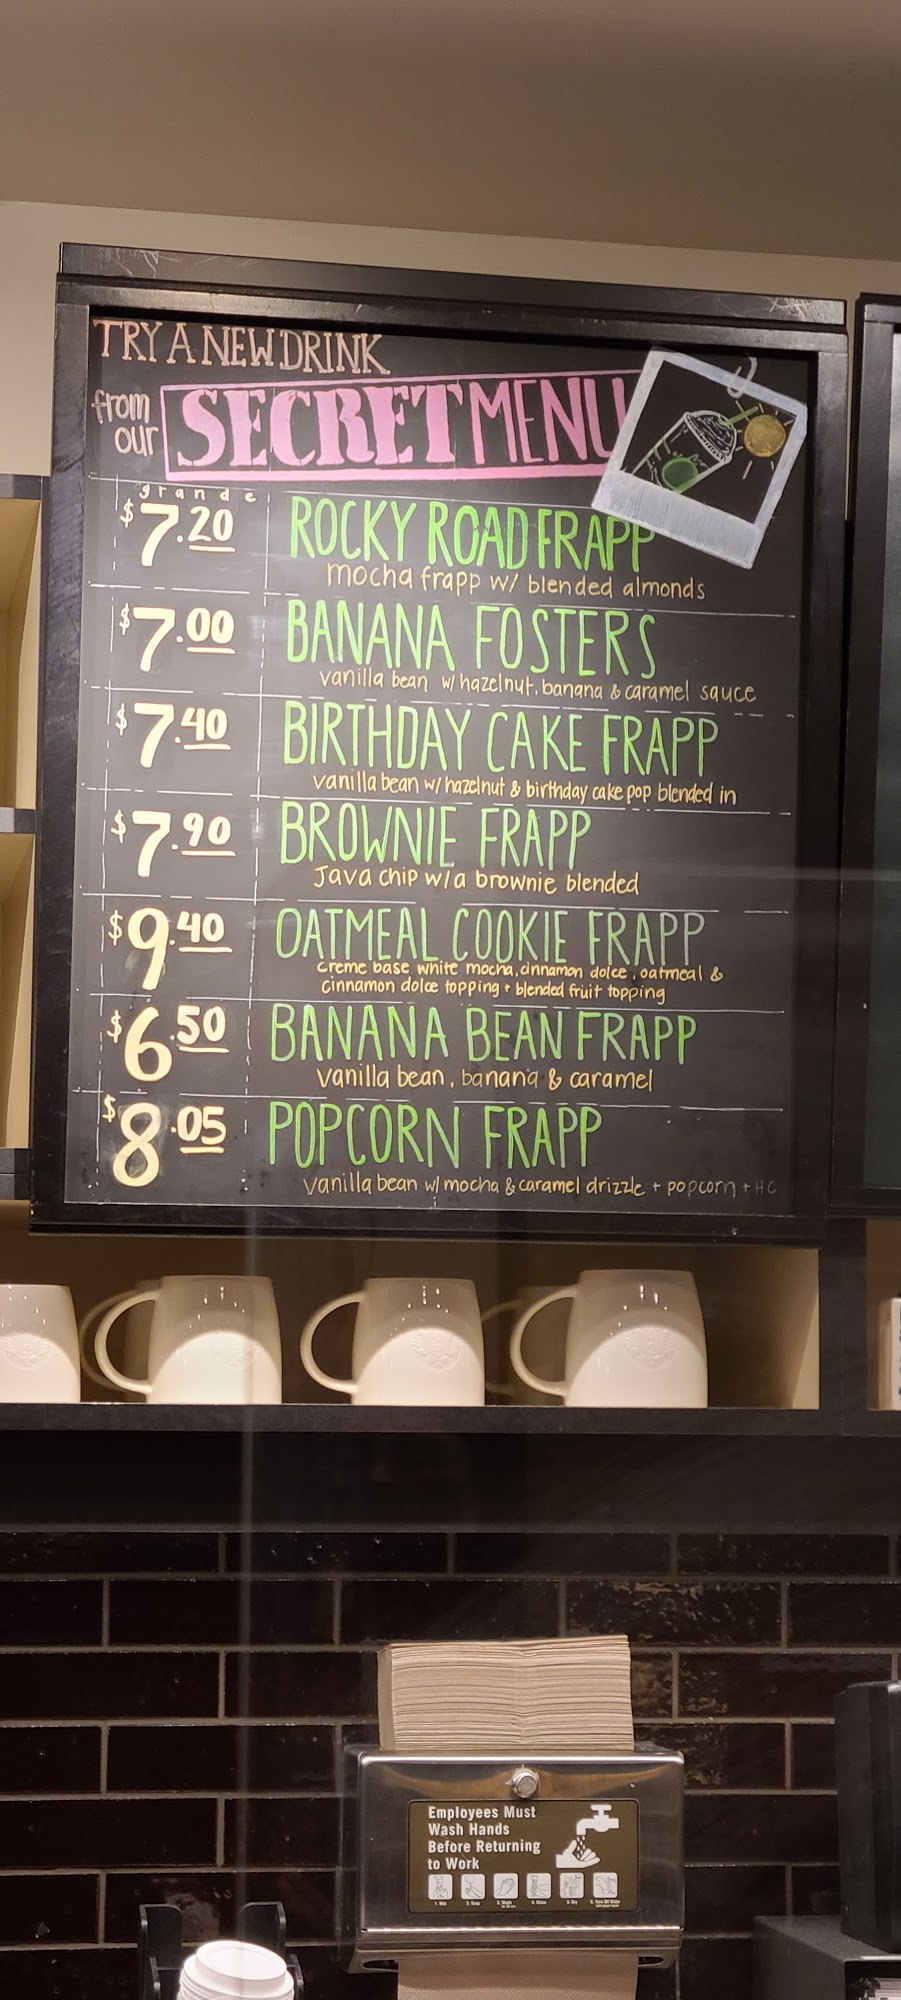 TRY A NEW DRINK
from our SECRET MENU
grande
$7.20 ROCKY ROAD FRAPP
mocha frapp w/ blended almonds
$7.00 BANANA FOSTERS
vanilla bean w/ hazelnut, banana & caramel sauce
$7.40 BIRTHDAY CAKE FRAPP
vanilla bean w/ hazelnut & birthday cake pop blended in
$7.90 BROWNIE FRAPP
Java chip w/a brownie blended
$9.40 OATMEAL COOKIE FRAPP
creme base white mocha, cinnamon dolce, oatmeal &
cinnamon dolce topping + blended fruit topping
$6.50 BANANA BEAN FRAPP
vanilla bean, banana & caramel
$8.05 POPCORN FRAPP
vanilla bean w/ mocha & caramel drizzle + popcorn + HC
Employees Must
Wash Hands
Before Returning
to Work